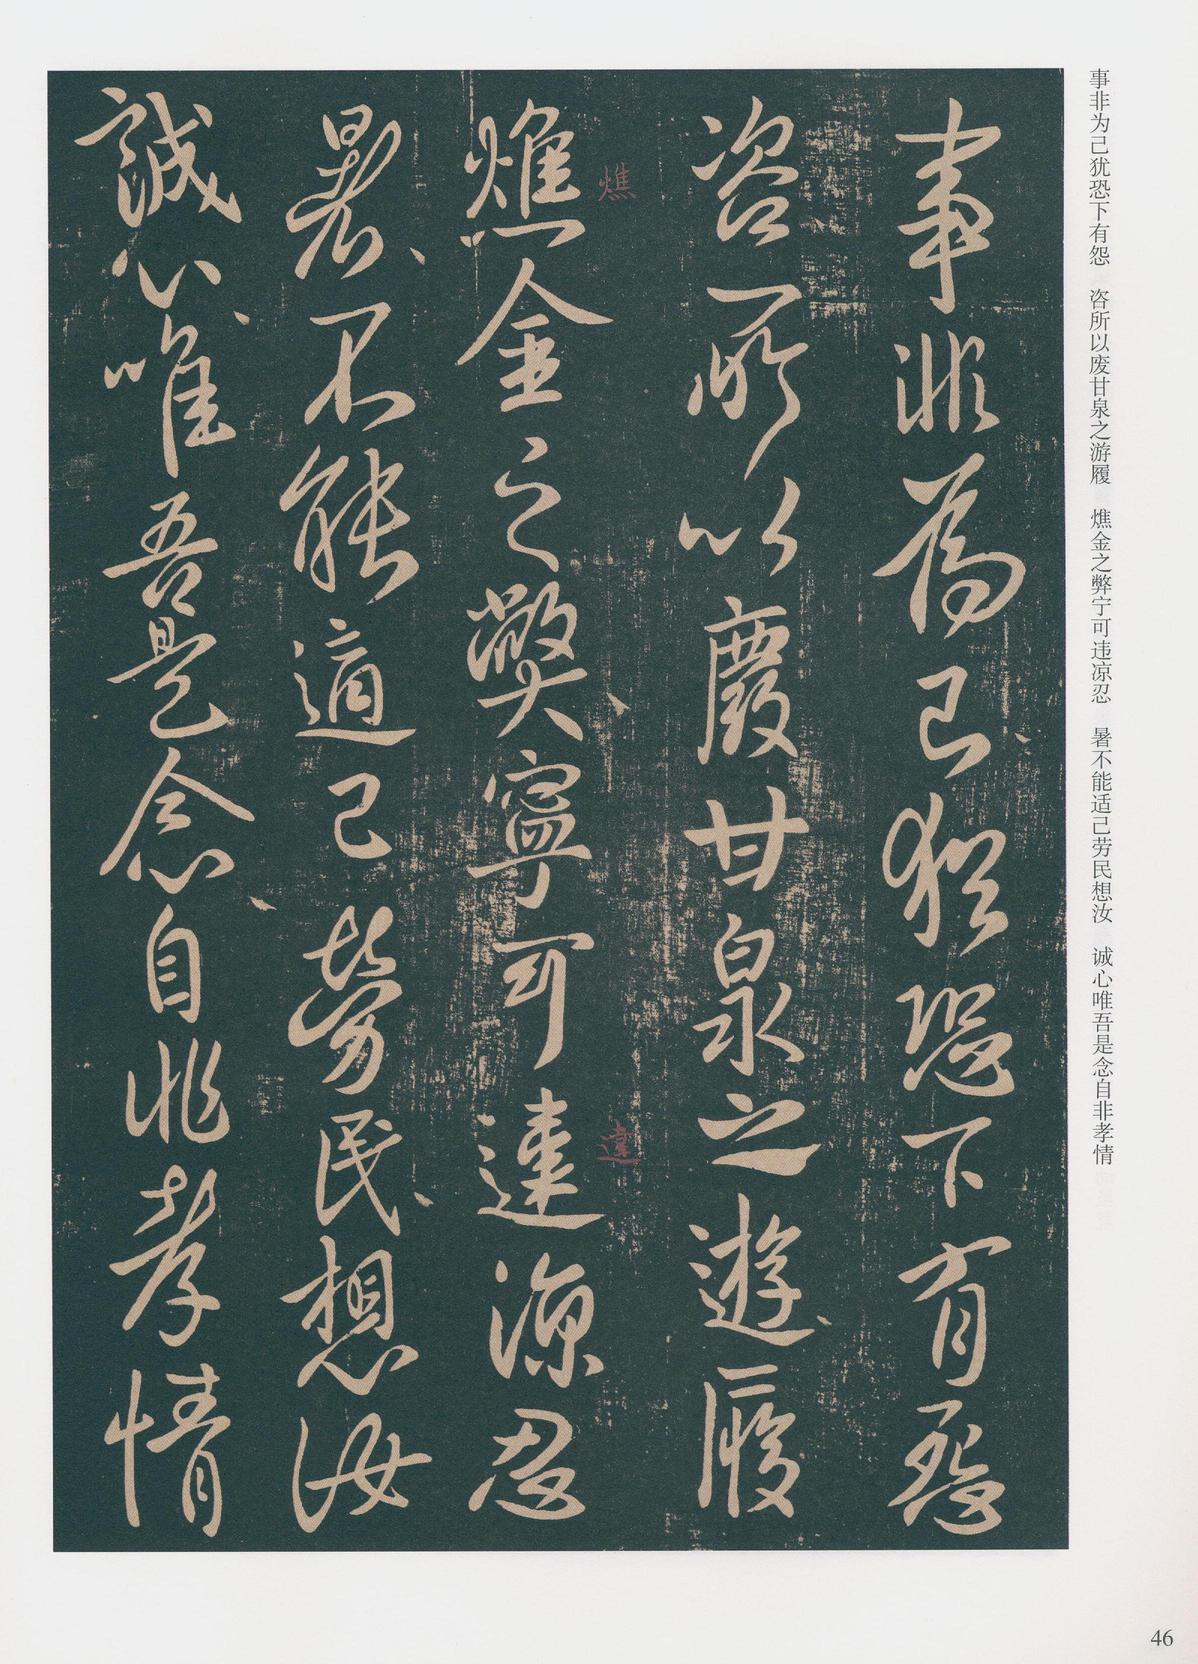 事非为己犹恐下有怨　咨所以废甘泉之游履　燋金之弊宁可违凉忍　暑不能适己劳民想汝　诚心唯吾是念自非孝情
事非為己猶恐下有怨
咨所以廢甘泉之遊履
燋
違
燋金之弊寧可違涼忍
暑不能適己勞民想汝
誠心唯吾是念自非孝情
46